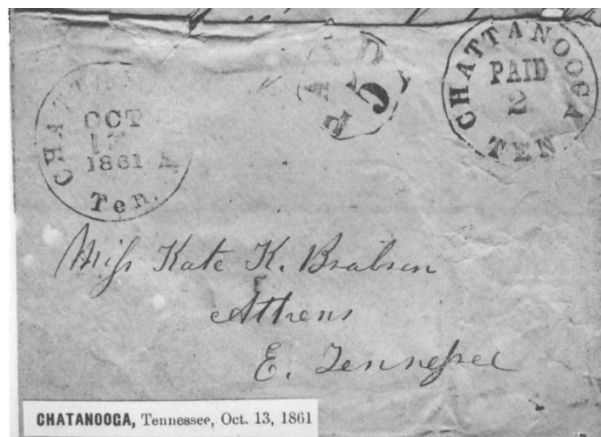 CHATTANOOGA
OCT
13
1861
Ten.
PAID
5
CHATTANOOGA
PAID
2
TEN
Miss Kate K. Brabson
Athens
E. Tennessee
CHATANOOGA, Tennessee, Oct. 13, 1861